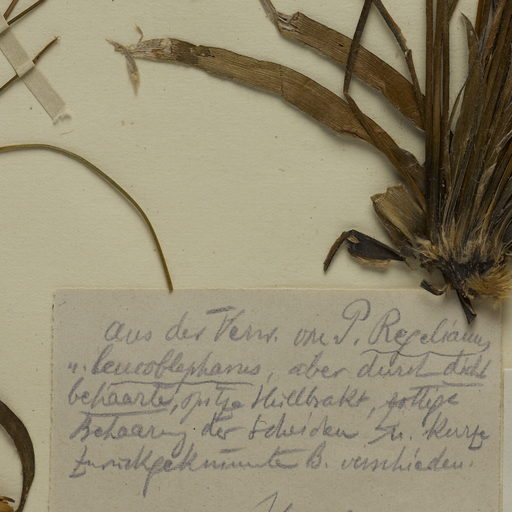 aus der Verw. von P. Regelianus
u. leucoblepharus, aber durch dicht
behaarte, spitze Hüllbrakt., zottige
Behaarung der Scheiden u. kurze
zurückgekrümmte B. verschieden.